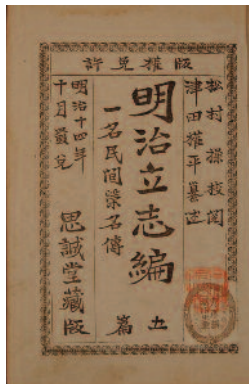 版權免許
松村操校閲
津田權平
明治立志編
五篇
一名民間榮名傳
明治十四年
十月發兌
思誠堂藏版